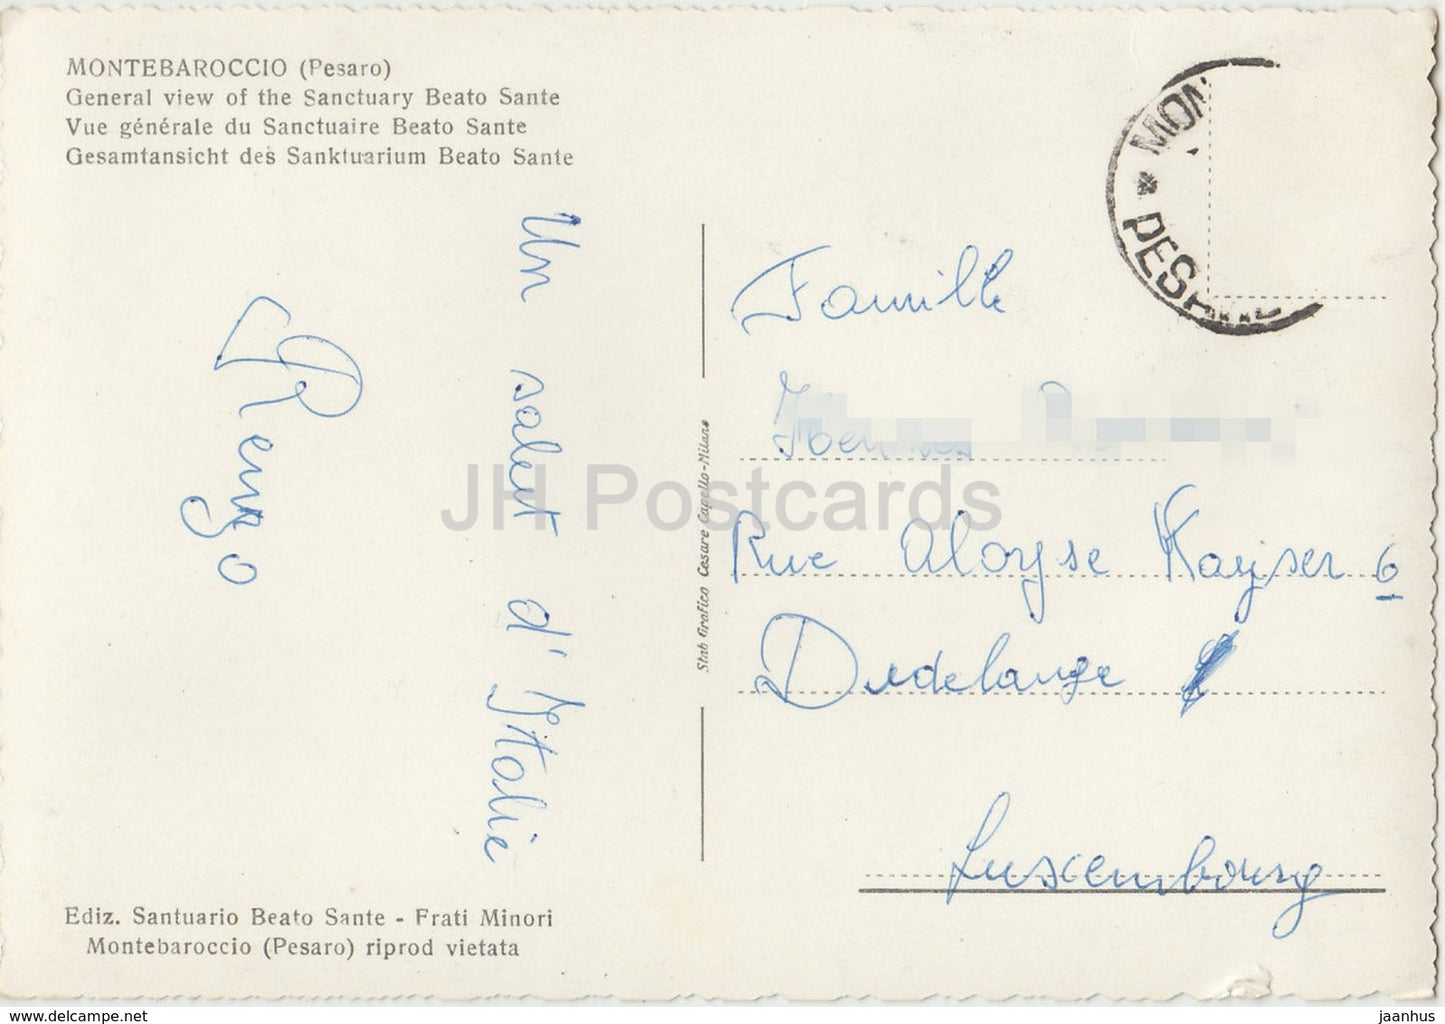 MONTEBAROCCIO (Pesaro)
General view of the Sanctuary Beato Sante
Vue générale du Sanctuaire Beato Sante
Gesamtansicht des Sanktuarium Beato Sante
Un salut d'Italie
Renzo
Ediz. Santuario Beato Sante - Frati Minori
Montebaroccio (Pesaro) riprod vietata
Stab Grafico Cesare Capello-Milano
MON
PESA
Famille
Rue Aloyse Kayser 6
Dudelange
Luxembourg
JH Postcards
www.delcampe.net
jaanhus